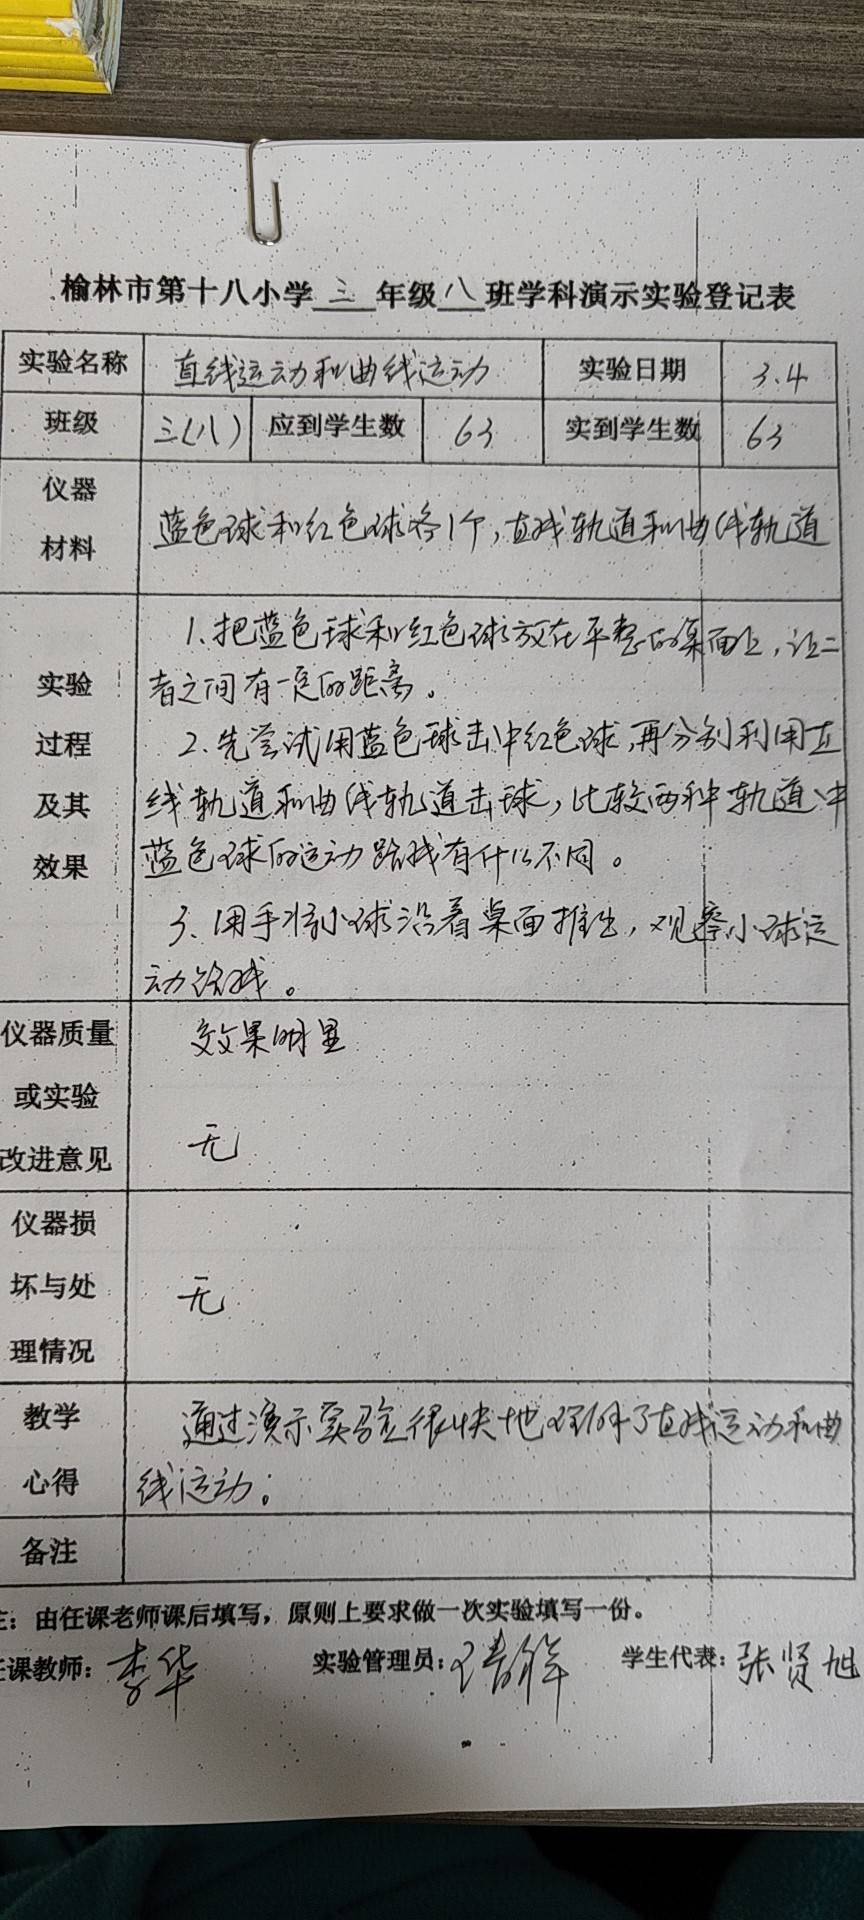 榆林市第十八小学三年级八班学科演示实验登记表
实验名称 直线运动和曲线运动 实验日期 3.4
班级 三(八) 应到学生数 63 实到学生数 63
仪器
材料
蓝色球和红色球各1个,直线轨道和曲线轨道
实验
过程
及其
效果
1.把蓝色球和红色球放在平整的桌面上,让二
者之间有一定的距离。
2.先尝试用蓝色球击中红色球,再分别利用直
线轨道和曲线轨道击球,比较两种轨道中
蓝色球的运动路线有什么不同。
3.用手将小球沿着桌面推出,观察小球运
动路线。
仪器质量
或实验
改进意见
效果明显
无
仪器损
坏与处
理情况
无
教学
心得
通过演示实验很快地理解了直线运动和曲
线运动;
备注
注:由任课老师课后填写,原则上要求做一次实验填写一份。
任课教师:李华 实验管理员: 学生代表:张贤旭